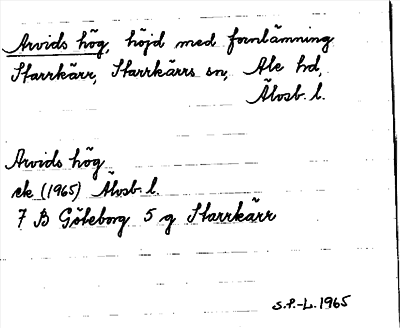 Arvids hög, höjd med fornlämning
Starrkärr, Starrkärrs sn, Ale hd,
Älvsb. l.
Arvids hög
ek (1965) Älvsb. l.
7 B Göteborg 5 g Starrkärr
S.P.-L. 1965